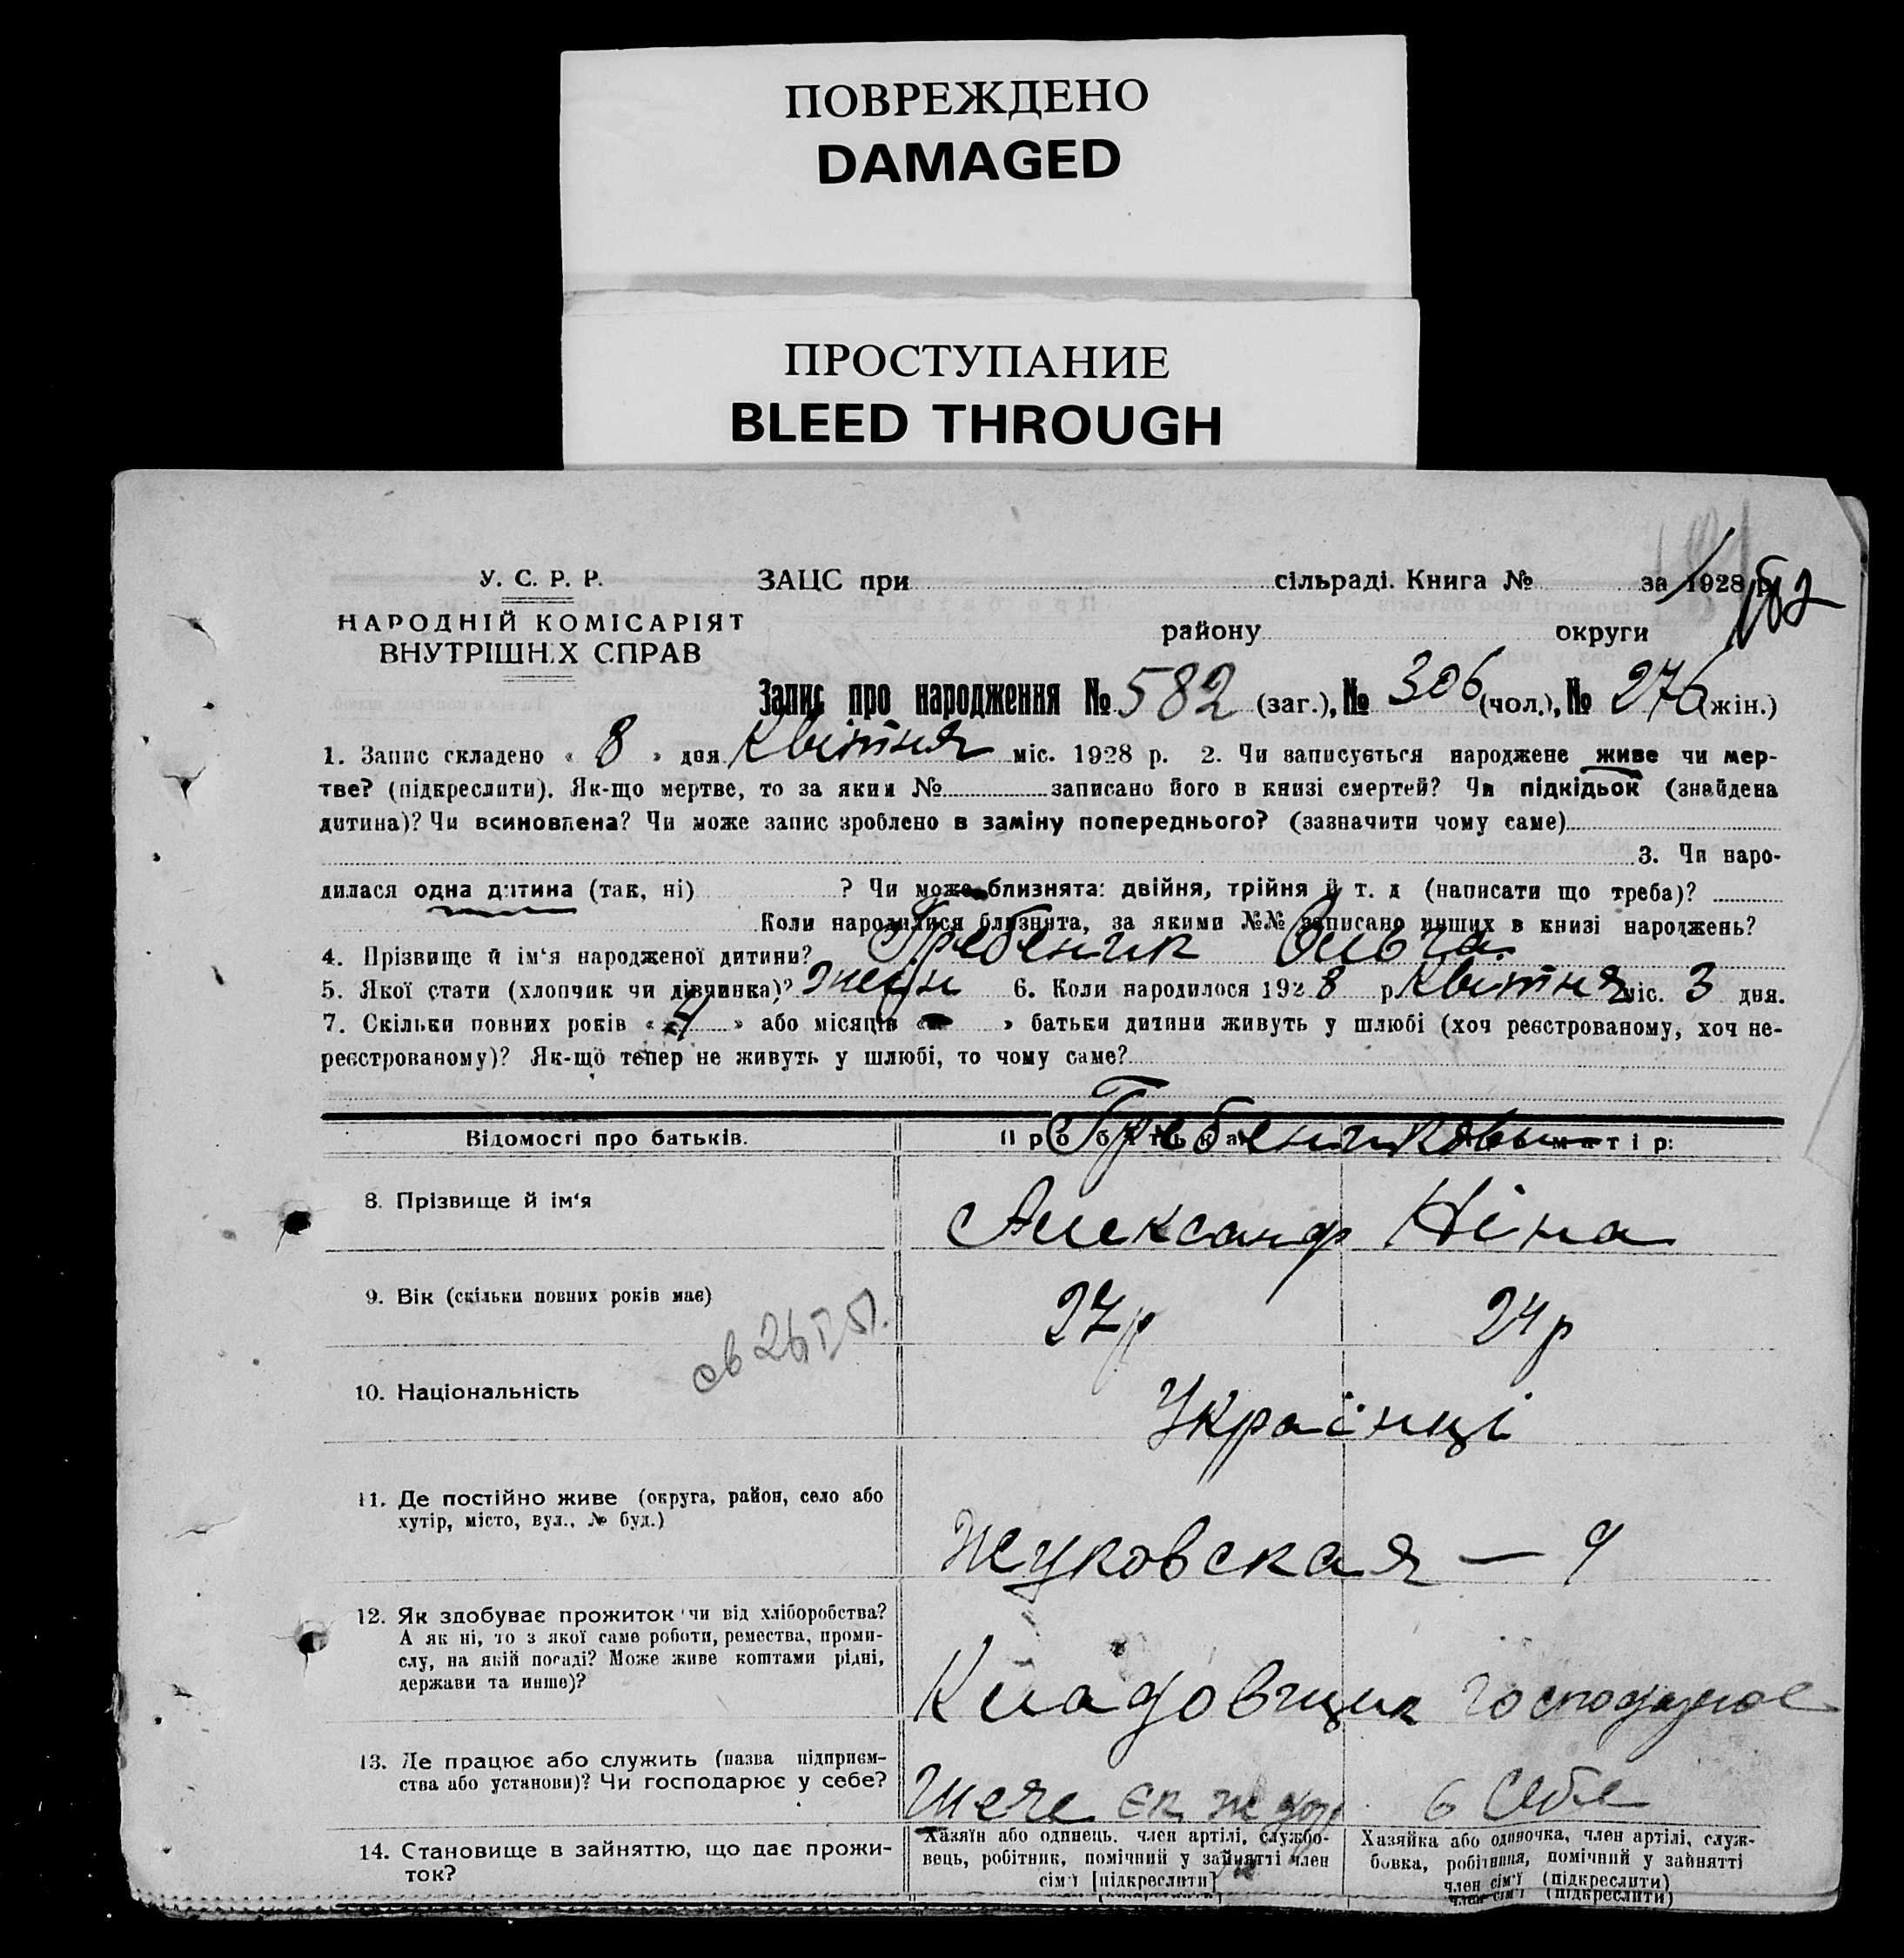 ПОВРЕЖДЕНО
DAMAGED
ПРОСТУПАНИЕ
BLEED THROUGH
У. С. Р. Р.
НАРОДНІЙ КОМІСАРІЯТ
ВНУТРІШНІХ СПРАВ
ЗАЦС при сільраді. Книга № за 1928 р.
району округи
Запис про народження № 582 (заг.), № 306 (чол.), № 276 (жін.)
1. Запис складено « 8 » дня Квітня міс. 1928 р. 2. Чи записується народжене живе чи мер-
тве? (підкреслити). Як-що мертве, то за яким № записано його в книзі смертей? Чи підкідьок (знайдена
дитина)? Чи всиновлена? Чи може запис зроблено в заміну попереднього? (зазначити чому саме)
3. Чи наро-
дилася одна дитина (так, ні) ? Чи може близнята: двійня, трійня й т. д (написати що треба)?
Коли народилися близнята, за якими №№ записано инших в книзі народжень?
4. Прізвище й ім‘я народженої дитини? Гребеник Ольга
5. Якої стати (хлопчик чи дівчинка)? жін 6. Коли народилося 1928 р Квітня міс. 3 дня.
7. Скільки повних років « 4 » або місяців « » батьки дитини живуть у шлюбі (хоч реєстрованому, хоч не-
реєстрованому)? Як-що тепер не живуть у шлюбі, то чому саме?
Відомості про батьків. Про батька: Про матір:
Гребениковы
8. Прізвище й ім‘я Александр Ніна
9. Вік (скільки повних років має) 27р 24р
10. Національність Українці
11. Де постійно живе (округа, район, село або
хутір, місто, вул., № буд.)
Жуковская — 9
12. Як здобуває прожиток чи від хліборобства?
А як ні, то з якої саме роботи, ремества, проми-
слу, на якій посаді? Може живе коштами рідні,
держави та инше)?
Кладовщик
13. Де працює або служить (назва підприєм-
ства або установи)? Чи господарює у себе?
в себе
14. Становище в зайняттю, що дає прожи-
ток?
Хазяїн або одинець, член артілі, службо-
вець, робітник, помічний у зайнятті член
сім‘ї [підкреслити]
Хазяйка або одиночка, член артілі, служ-
бовка, робітниця, помічний у зайнятті
член сім‘ї (підкреслити)
член сім‘ї (підкреслити)